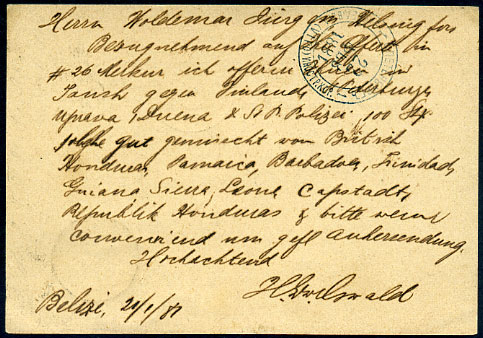 Herrn Woldemar Jürgens Helsingfors
Bezugnehmend auf Ihre Offerte in
#26 Merkur ich offerire Ihnen im
Tausch gegen Finland,
Uprava, Duena & St P. Polizei, 100 St
solche gut gemischt von British
Honduras, Jamaica, Barbados, Trinidad,
Guiana Sierra Leone Capstadt,
Republik Honduras & bitte wenn
convenirend um gefl Ankersendung.
Hochachtend
Belize, 21/1/81